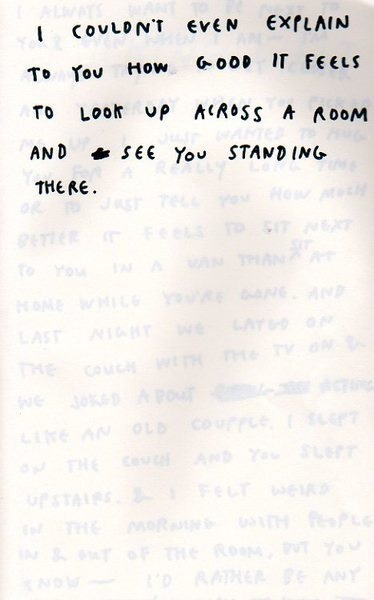 I COULDN'T EVEN EXPLAIN
TO YOU HOW GOOD IT FEELS
TO LOOK UP ACROSS A ROOM
AND SEE YOU STANDING
THERE.
I ALWAYS WANT TO BE NEXT TO
YOU & EVEN WHEN I AM— I'M
ME UP. I JUST WANTED TO HUG
YOU FOR A REALLY LONG TIME
OR TO JUST TELL YOU HOW MUCH
BETTER IT FEELS TO SIT NEXT
TO YOU IN A VAN THAN SIT AT
HOME WHILE YOU'RE GONE. AND
LAST NIGHT WE LAYED ON
THE COUCH WITH THE TV ON &
WE JOKED ABOUT ACTING
LIKE AN OLD COUPPLE. I SLEPT
ON THE COUCH AND YOU SLEPT
UPSTAIRS. & I FELT WEIRD
IN THE MORNING WITH PEOPLE
IN & OUT OF THE ROOM, BUT YOU
KNOW — I'D RATHER BE ANY